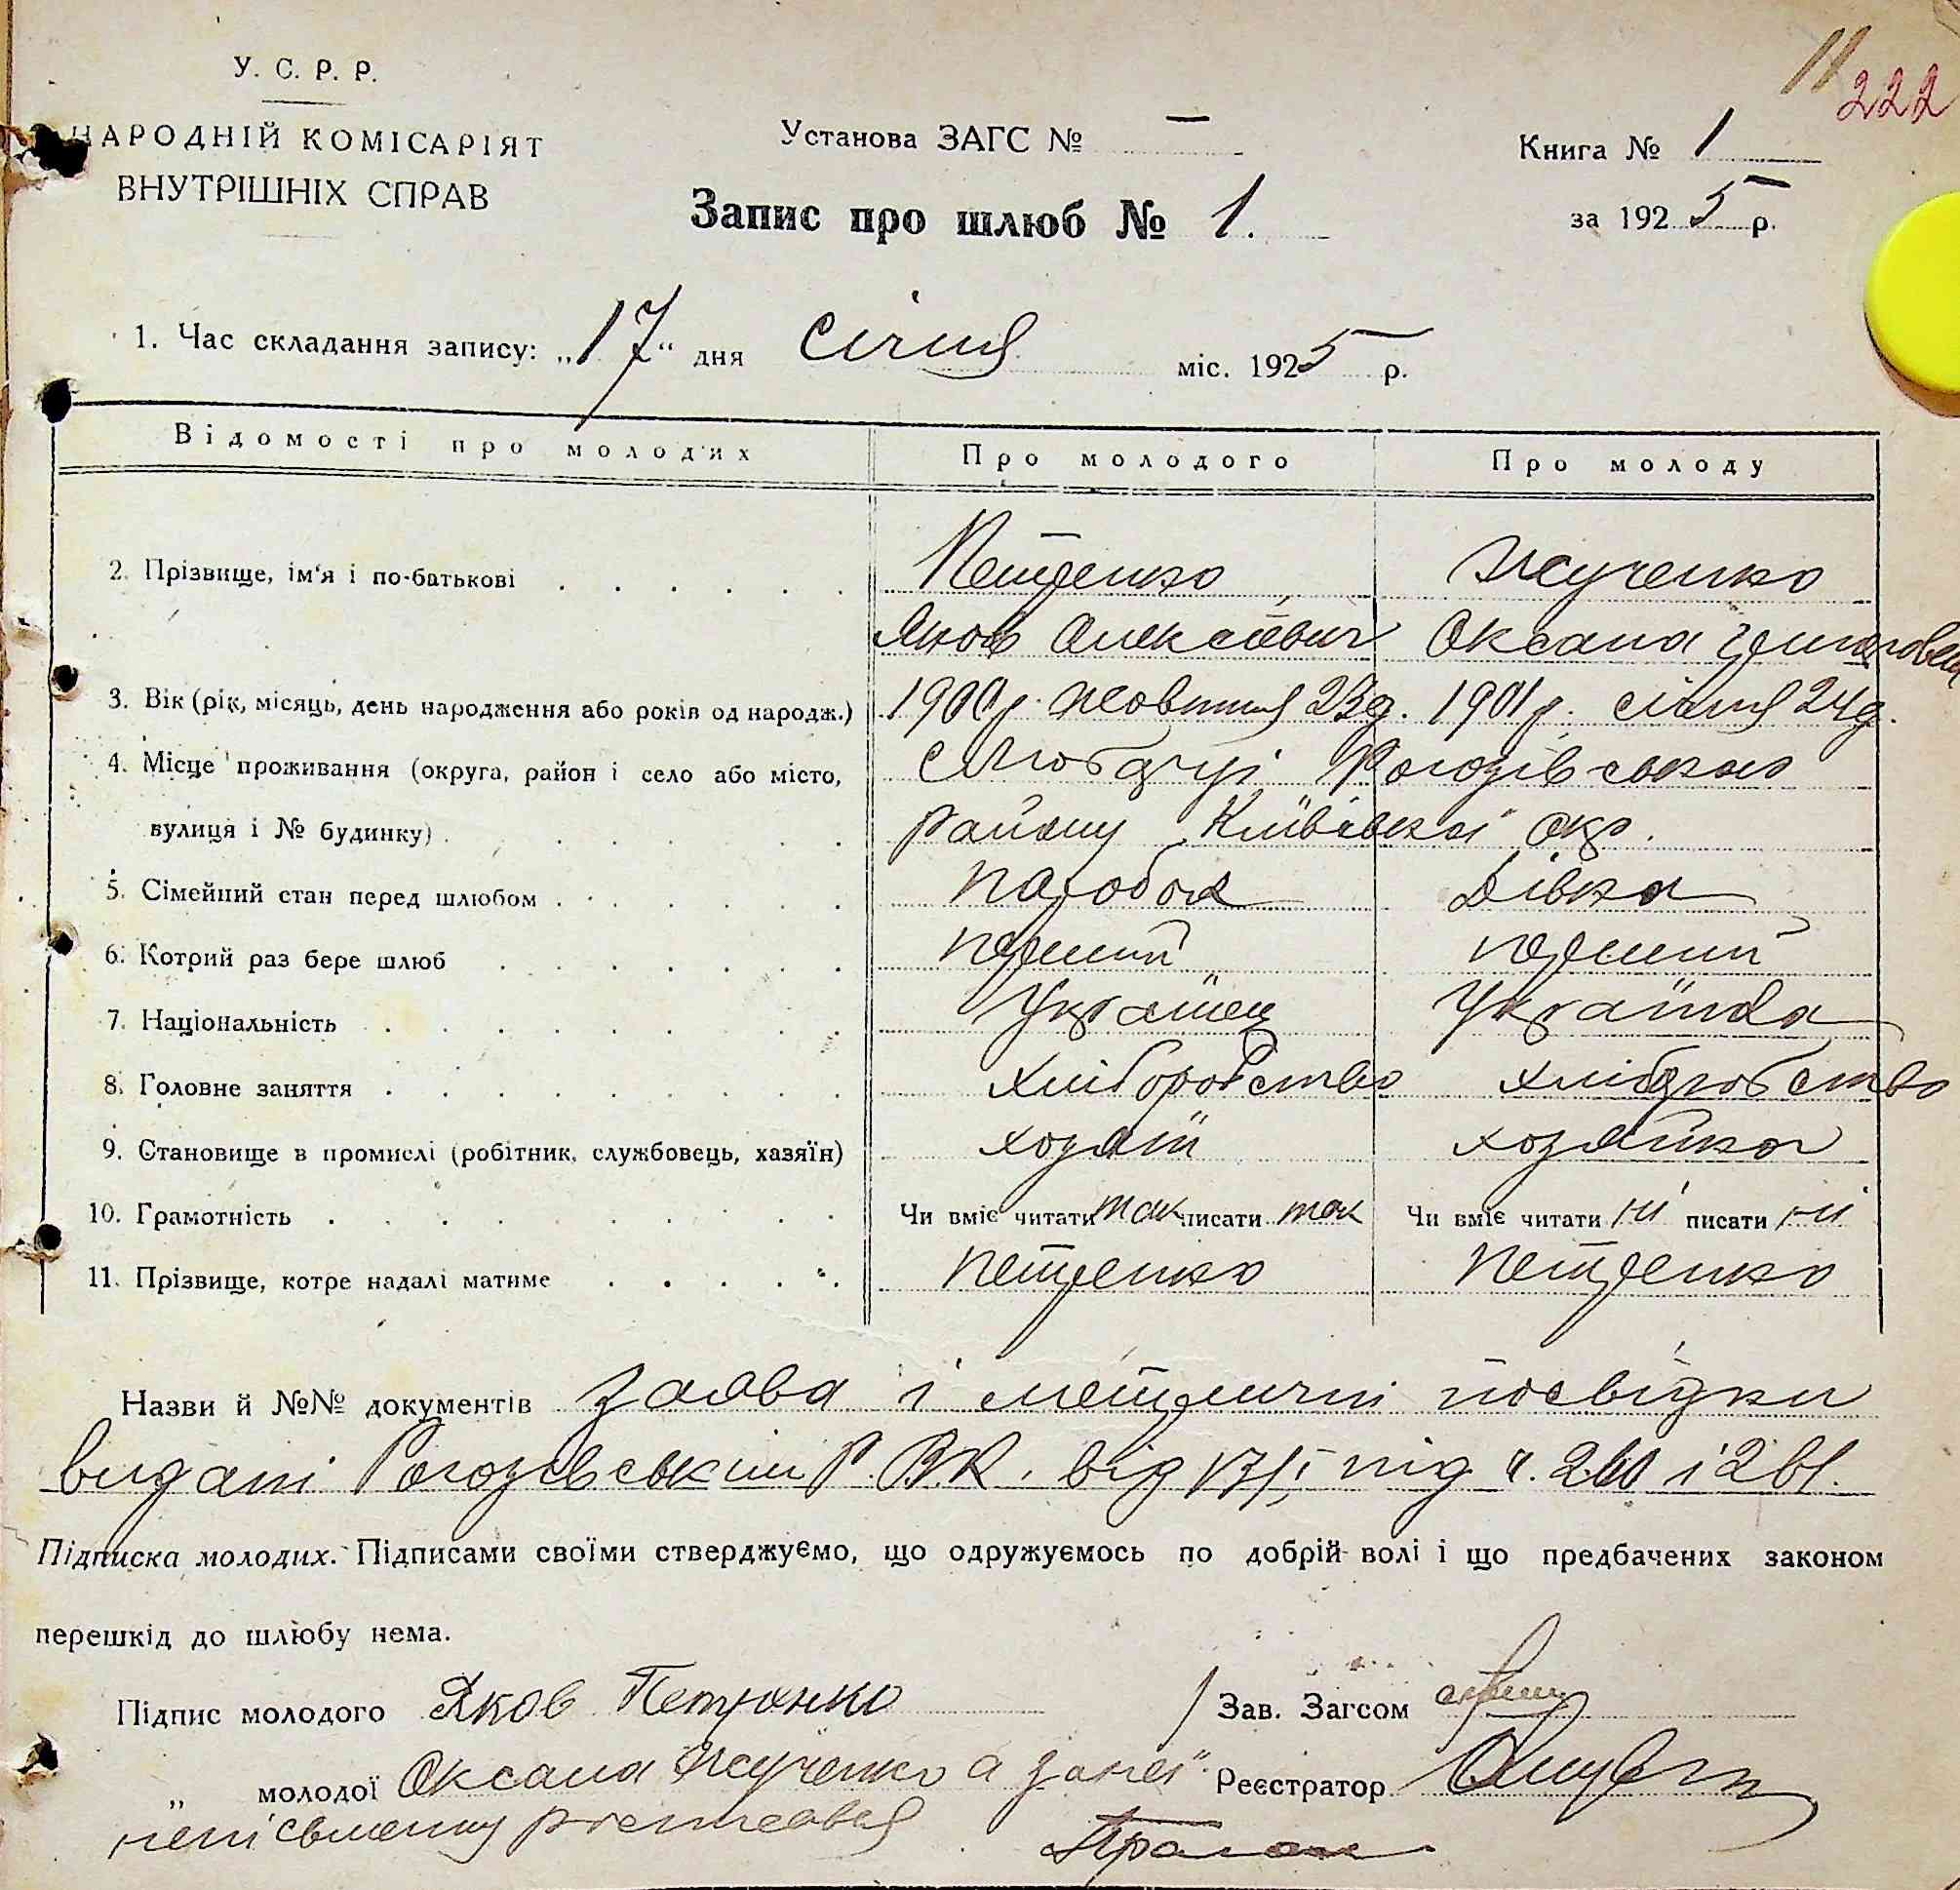 11
222
У. С. Р. Р.
НАРОДНІЙ КОМІСАРІЯТ
ВНУТРІШНІХ СПРАВ
Установа ЗАГС № —
Книга № 1
за 1925 р.
Запис про шлюб № 1.
1. Час складання запису: „17“ дня Січня міс. 1925 р.
Відомості про молодих Про молодого Про молоду
2. Прізвище, ім‘я і по-батькові Петренко Жученко
Яков Олексіевич Оксана
3. Вік (рік, місяць, день народження або років од народж.) 1900 р. жовтня 23 д. 1901 р. січня 24 д.
4. Місце проживання (округа, район і село або місто, с Любарці Рогозівського
вулиця і № будинку) району Київської окр.
5. Сімейний стан перед шлюбом паробок дівка
6. Котрий раз бере шлюб перший перший
7. Національність Українец Українка
8. Головне заняття хліборобство хліборобство
9. Становище в промислі (робітник, службовець, хазяїн) хозяїн хозяйка
10. Грамотність Чи вміє читати так писати так Чи вміє читати ні писати ні
11. Прізвище, котре надалі матиме Петренко Петренко
Назви й №№ документів заява і метричні посвідки
видані Рогозівським Р.В.К. від 17/I під ч. 260 і 261.
Підписка молодих. Підписами своїми стверджуємо, що одружуємось по добрій волі і що предбачених законом
перешкід до шлюбу нема.
Підпис молодого Яков Петренко Зав. Загсом
„ молодої Оксана Жученко а за неї Реєстратор
непісьменну